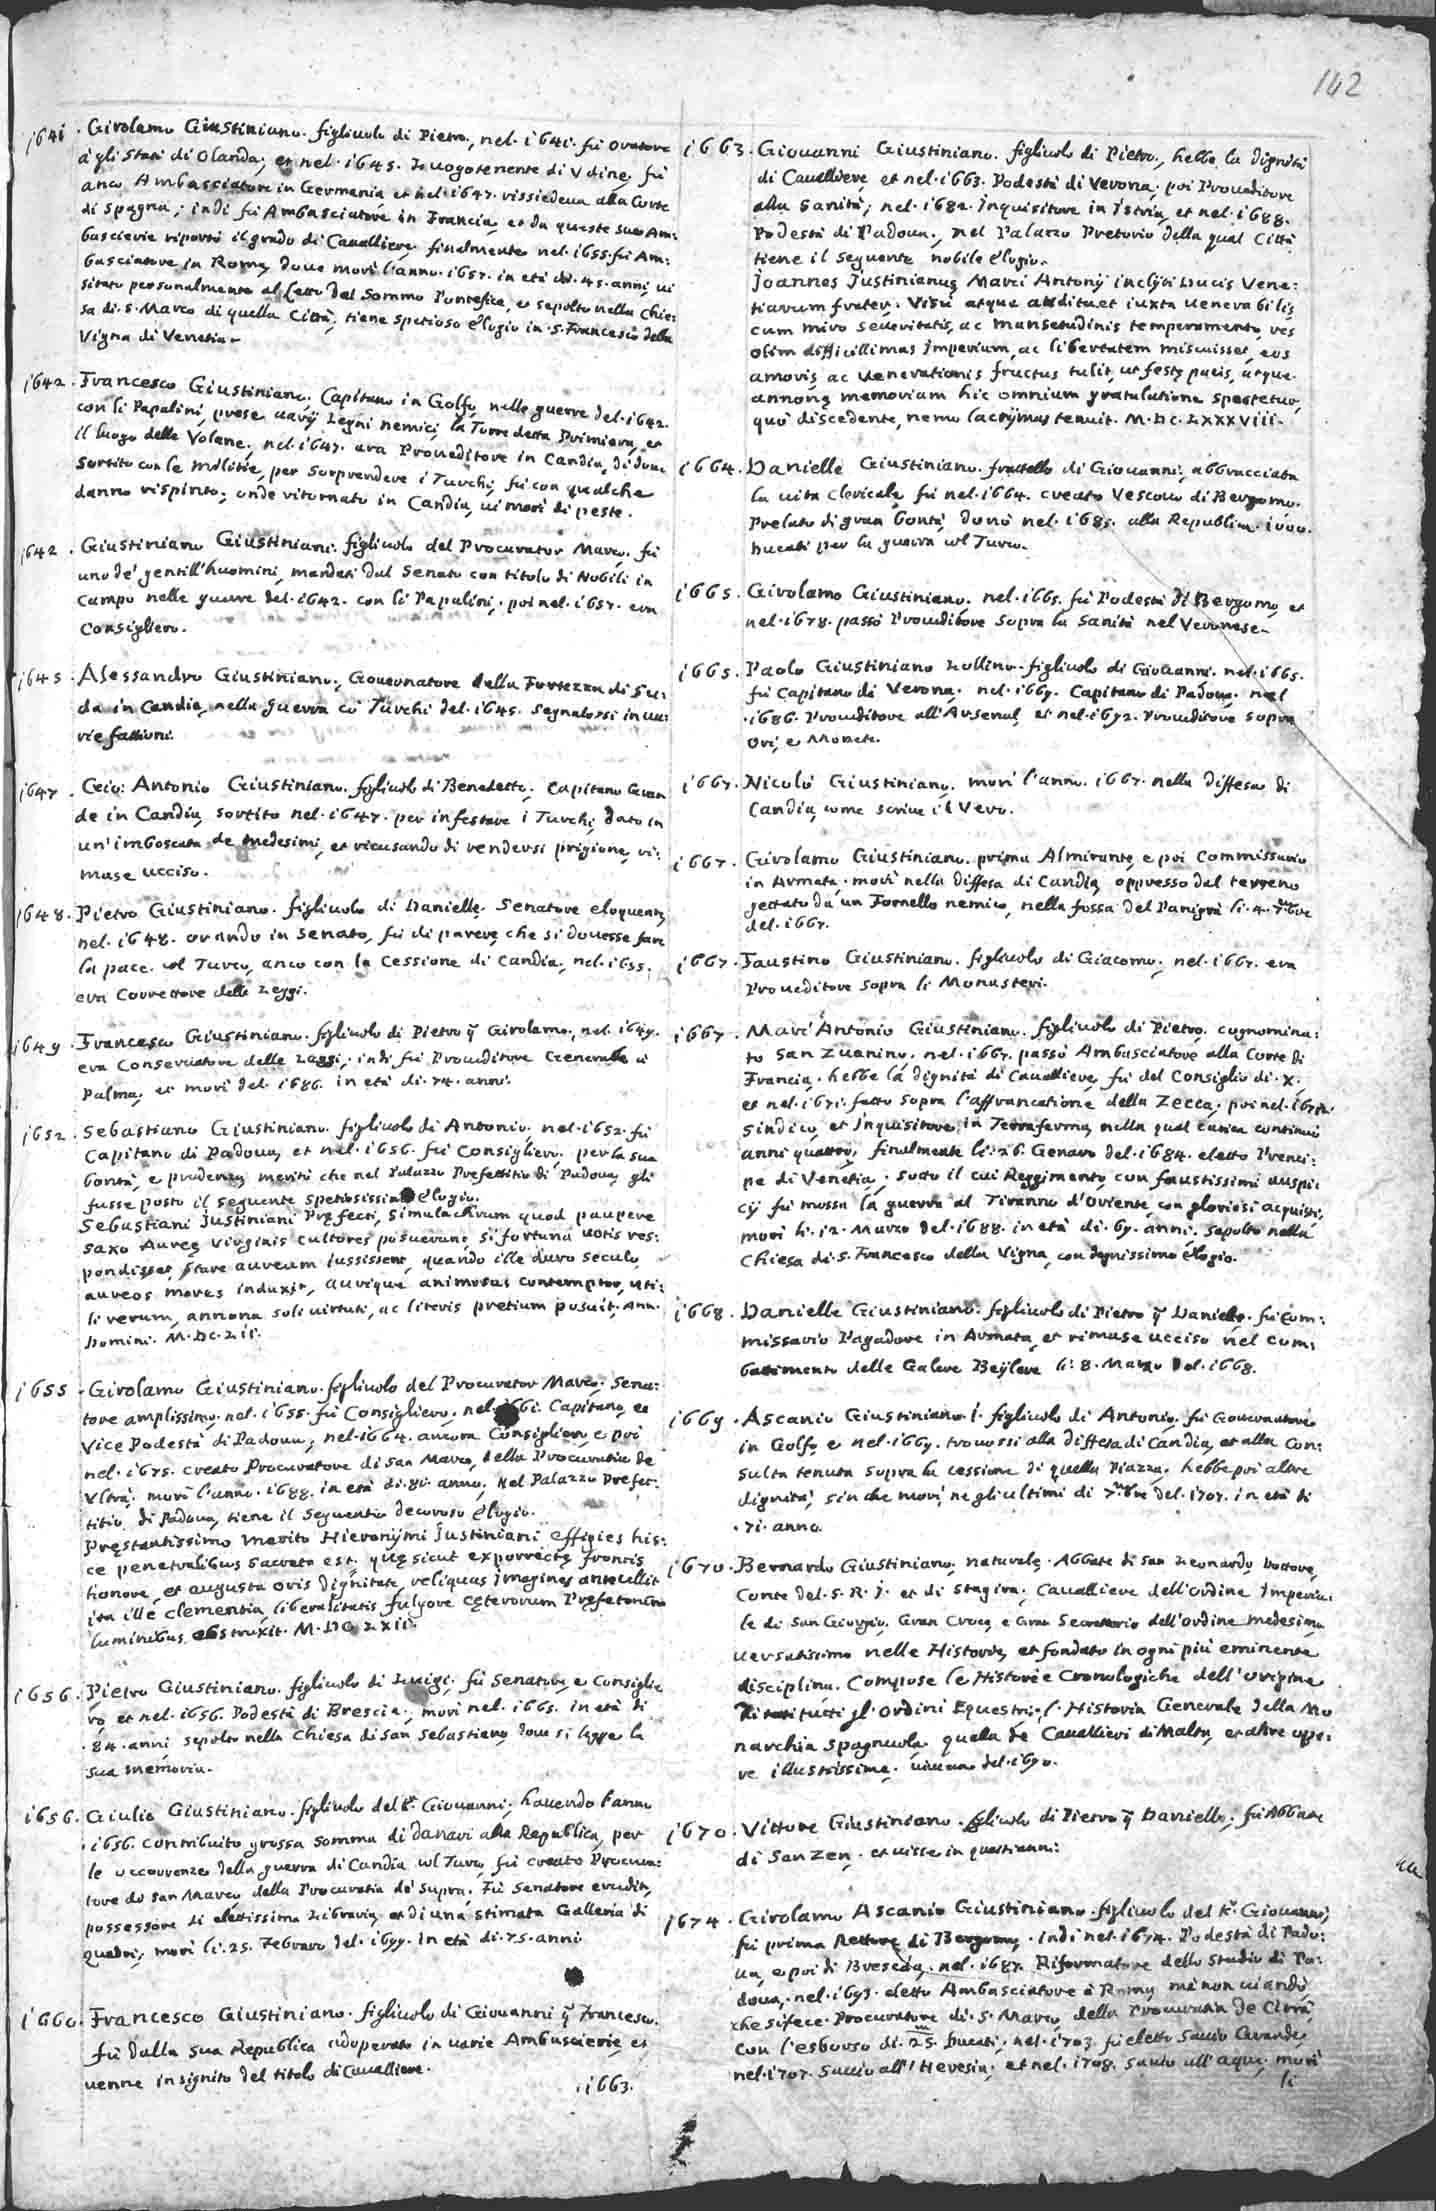 142
1641. Girolamo Giustiniano. figliuolo di Pietro, nel. 1641. fù Oratore
à gli Stati di Olanda; et nel. 1645. Luogotenente di Vdine, fù
anco Ambasciatore in Germania, et nel. 1647. rissiedeua alla Corte
di Spagna; indi fù Ambasciatore in Francia, et da queste sue Am:
bascierie riportò il grado di Caualliere, finalmente nel. 1655. fù Am:
basciatore in Roma, doue morì l'anno. 1657. in età di. 45. anni, ui
sitato personalmente al Letto dal Sommo Pontefice, e sepolto nella Chie:
sa di. S. Marco di quella Città, tiene spetioso elogio in. S. Francesco della
Vigna di Venetia.
1642. Francesco Giustiniano, Capitano in Golfo, nelle guerre del. 1642.
con li Papalini, prese uarij Legni nemici, la Torre detta Primiera, et
il luogo delle Volane, nel. 1647. era Proueditore in Candia, di doue
sortito con le militie, per sorprendere i Turchi, fù con qualche
danno rispinto; onde ritornato in Candia, ui morì di peste.
1642. Giustiniano Giustiniani. figliuolo del Procurator Marco. fù
uno de' gentill'huomini, mandati dal Senato con titolo di Nobili in
Campo nelle guerre del. 1642. con li Papalini, poi nel. 1657. era
Consigliero.
1645. Alessandro Giustiniano, Gouernatore della Fortezza di Su:
da in Candia, nella guerra cò Turchi del. 1645. segnalossi in ua:
rie fattioni.
1647. Gio: Antonio Giustiniano. figliuolo di Benedetto; Capitano Gran
de in Candia, sortito nel. 1647. per infestare i Turchi, dato in
un'imboscata de medesimi, et ricusando di rendersi prigione, ri:
mase ucciso.
1648. Pietro Giustiniano. figliuolo di Danielle. Senatore eloquente,
nel. 1648. orando in Senato, fù di parere, che si douesse fare
la pace. col Turco, anco con la Cessione di Candia, nel. 1655.
era Correttore delle Leggi.
1649. Francesco Giustiniano. figliuolo di Pietro q̃ Girolamo, nel. 1649.
era Conseruatore delle Leggi; indi fù Proueditore Generale à
Palma, et morì del. 1686. in età di. 74. anni.
1652. Sebastiano Giustiniano. figliuolo di Antonio, nel. 1652. fù
Capitano di Padoua, et nel. 1656. fù Consigliero. per la sua
bontà, e prudenza meritò che nel Palazzo Prefettitio di Padoua gli
fusse posto il seguente spetiosissimo elogio.
Sebastiani Justiniani Pręfecti, simulachrum quod paupere
saxo Aureę Virginis cultores posuerunt, si fortuna uotis res:
pondisset, stare aureum iussissent, quando ille duro seculo
aureos mores induxit, aurique animosus contemptor, uti:
li rerum, annona soli uirtuti, ac literis pretium posuit. Ann.
Domini. M. DC. LII.
1655. Girolamo Giustiniano. figliuolo del Procurator Marco. Sena:
tore amplissimo. nel. 1655. fù Consigliero, nel. 1661. Capitano, et
Vice Podestà di Padoua, nel. 1664. ancora Consigliero e poi
nel. 1675. creato Procuratore di San Marco, della Procuratia de
Vltra. morì l'anno. 1688. in età di. 81. anno, Nel Palazzo Prefet:
titio di Padoua, tiene il seguente decoroso elogio.
Pręstantissimo merito Hieronÿmi Justiniani effigies his:
ce penetralibus sacrata est. quę sicut exporrectę frontis
honore, et augusta oris dignitate, reliquas imagines antecellit
ita ille clementia, liberalitatis fulgore cęterorum Pręfectorum
luminibus obstruxit. M. DC. LXII.
1656. Pietro Giustiniano. figliuolo di Luigi, fù Senatore, e Consiglie
ro, et nel. 1656. Podestà di Brescia, morì nel. 1665. in età di
.84. anni sepolto nella Chiesa di San Sebastiano, doue si legge la
sua memoria.
1656. Giulio Giustiniano. figliuolo del K.r Giouanni, hauendo l'anno
.1656. contribuito grossa somma di danari alla Republica, per
le occorrenze della guerra di Candia col Turco, fù creato Procura:
tore di San Marco della Procuratia de supra. Fù Senatore erudito,
possessore di elettissima Libraria, et di una stimata Galleria di
quadri, morì li. 25. Febraro del. 1699. in età di. 75. anni
1660. Francesco Giustiniano. figliuolo di Giouanni q̃ Francesco.
fù dalla sua Republica adoperato in uarie Ambascierie, et
uenne insignito del titolo di Caualliere.
.1663.
1663. Giouanni Giustiniano. figliuolo di Pietro, hebbe la dignità
di Caualliere, et nel. 1663. Podestà di Verona, poi Proueditore
alla Sanità; nel. 1682. Inquisitore in Istria, et nel. 1688.
Podestà di Padoua, nel Palazzo Pretorio della qual Città
tiene il seguente nobile elogio.
Joannes Justinianus Marci Antonij inclÿti Ducis Vene:
tiarum frater. Visu atque auditu et iuxta uenerabilis
cum miro seueritatis, ac mansuetudinis temperamento, res
olim difficillimas imperium, ac libertatem miscuisset, eos
amoris, ac uenerationis fructus tulit, ut festę pacis, atque
annonę memoriam hic omnium gratulatione spectetur,
quo discedente, nemo lacrÿmas tenuit. M. DC. LXXXVIII.
1664. Danielle Giustiniano. fratello di Giouanni, abbracciata
la uita clericale, fù nel. 1664. creato Vescouo di Bergomo.
Prelato di gran bontà, donò nel. 1685. alla Republica. 1000.
Ducati per la guerra col Turco.
1665. Girolamo Giustiniano. nel. 1665. fù Podestà di Bergomo, et
nel. 1678. passò Proueditore sopra la Sanità nel Veronese.
1665. Paolo Giustiniano Lollino. figliuolo di Giouanni. nel. 1665.
fù Capitano di Verona, nel. 1669. Capitano di Padoua, nel
.1686. Proueditore all'Arsenal, et nel. 1692. Proueditore sopra
Ori, e Monete.
1667. Nicolò Giustiniano, morì l'anno. 1667. nella diffesa di
Candia, come scriue il Vero.
1667. Girolamo Giustiniano. prima Almirante, e poi Commissario
in Armata. morì nella diffesa di Candia, oppresso dal terreno
gettato da un Fornello nemico, nella fossa del Panigrà li. 4. 7bre
del. 1667.
1667. Faustino Giustiniano. figliuolo di Giacomo, nel. 1667. era
Proueditore sopra li Monasteri.
1667. Marc'Antonio Giustiniano. figliuolo di Pietro, cognomina:
to San Zuanino, nel. 1667. passò Ambasciatore alla Corte di
Francia. hebbe la dignità di Caualliere, fù del Consiglio di. X.
et nel. 1671. fatto sopra l'affrancatione della Zecca, poi nel. 1672.
Sindico, et Inquisitore, in Terraferma, nella qual carica continuò
anni quattro, finalmente li. 26. Genaro del. 1684. eletto Prenci:
pe di Venetia, sotto il cui Reggimento, con faustissimi auspi:
cij fù mossa la guerra al Tiranno d'Oriente, con gloriosi acquisti,
morì li. 12. Marzo del. 1688. in età di. 69. anni. sepolto nella
Chiesa di. S. Francesco della Vigna, con degnissimo elogio.
1668. Danielle Giustiniano. figliuolo di Pietro q̃ Danielle. fù Com:
missario Pagadore in Armata, et rimase ucciso nel com:
battimento delle Galere Beÿlere li. 8. Marzo del. 1668.
1669. Ascanio Giustiniano. I. figliuolo di Antonio, fù Gouernatore
in Golfo, e nel. 1669. trouossi alla diffesa di Candia, et alla Con:
sulta tenuta sopra la cessione di quella Piazza. hebbe poi altre
dignità, sin che morì, negli ultimi di 7bre del. 1707. in età di
.71. anno.
1670. Bernardo Giustiniano, naturale. Abbate di San Leonardo, Dottore,
Conte del. S. R. I. et di Stagira; Caualliere dell'Ordine Imperia:
le di San Giorgio, Gran Croce, e Gran Secretario dell'Ordine medesimo
uersatissimo nelle Historie, et fondato in ogni più eminente
disciplina. Compose le Historie Cronologiche dell'origine
di tutti gl'Ordini Equestri, l'Historia Generale della Mo
narchia Spagnuola, quella de Cauallieri di Malta, et altre ope:
re illustrissime. uiueua del. 1690.
1670. Vittore Giustiniano. figliuolo di Pietro q̃ Danielle, fù Abbate
di San Zen, et uisse in questi anni.
1674. Girolamo Ascanio Giustiniano. figliuolo del K.r Giouanni,
fù prima Rettore di Bergomo, indi nel. 1674. Podestà di Pado:
ua, e poi di Brescia, nel. 1687. Riformatore dello Studio di Pa:
doua, nel. 1693. eletto Ambasciatore à Roma, mà non ui andò,
che si fece Procuratore di. S. Marco, della Procuratia de Citrà,
con l'esborso di. 25. m Ducati, nel. 1703. fù eletto Sauio Grande,
nel. 1707. Sauio all'Heresia, et nel. 1708. Sauio all'aque, morì
li